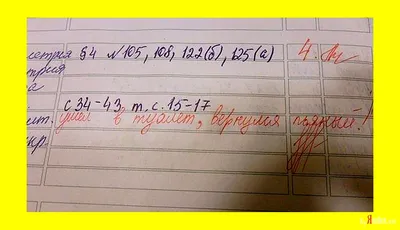 метрия §4 №105, 108, 122(б), 125(а) 4.
а
с 34-43 т.с. 15-17
ушёл в туалет, вернулся пьяный!